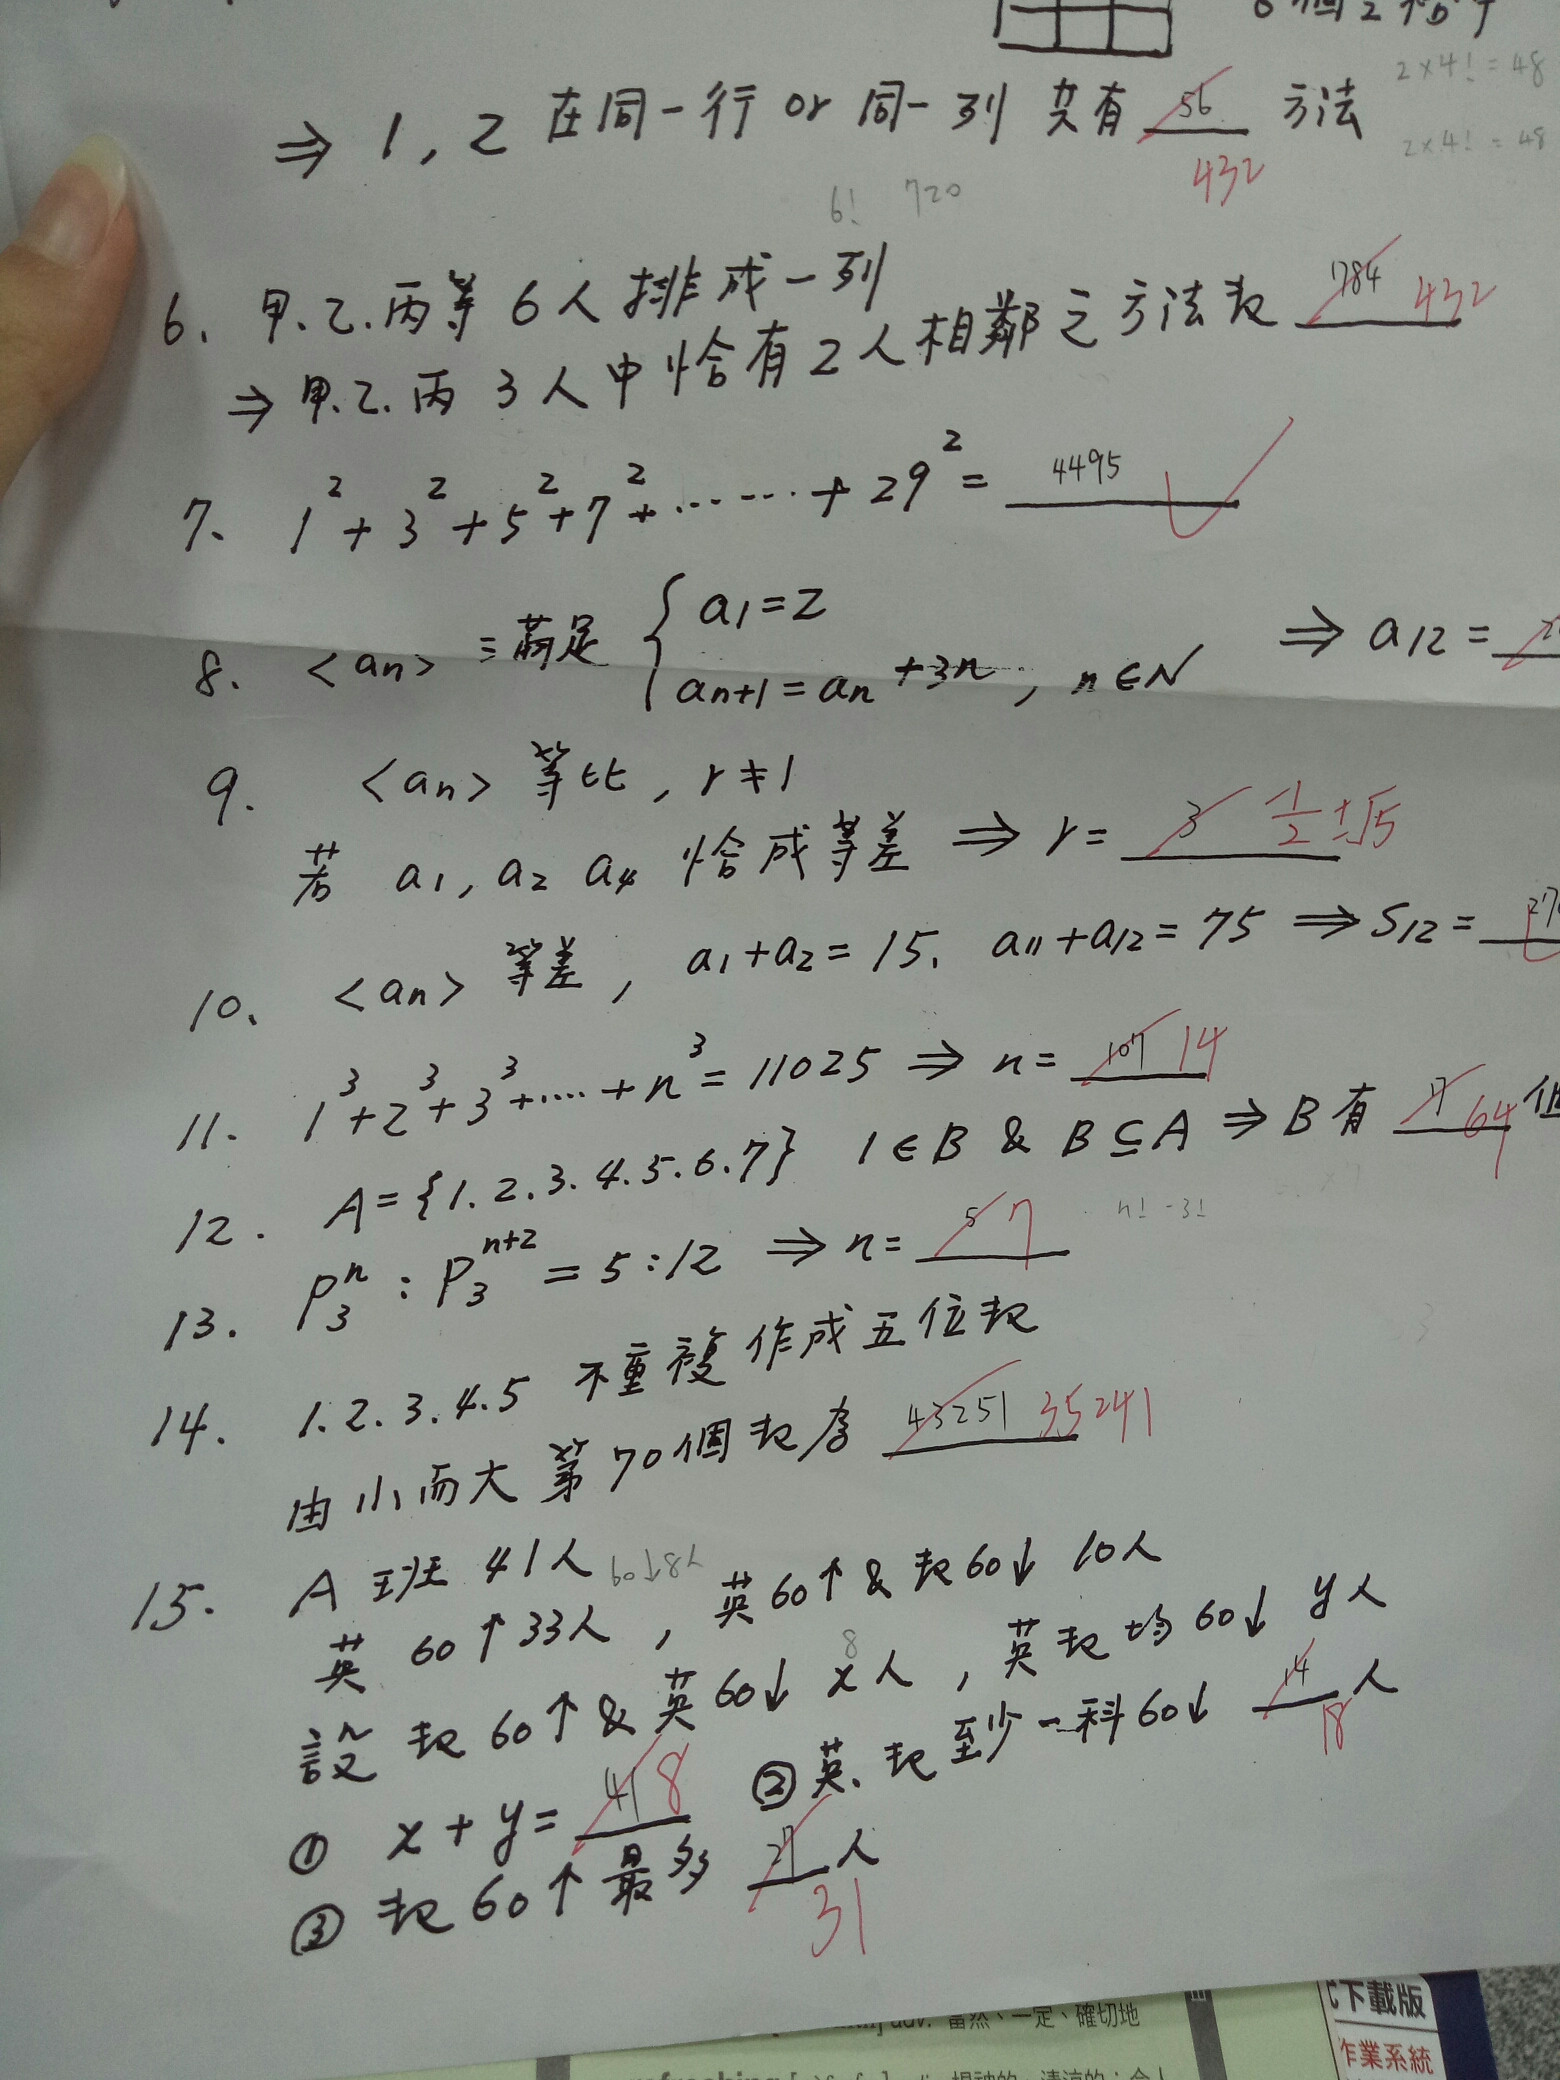 2×4! = 48
⇒ 1, 2 在同一行 or 同一列 共有 56 方法
432
2×4! = 48
6! 720
6. 甲.乙.丙等 6人排成一列
⇒ 甲.乙.丙 3人中恰有2人相鄰之方法數 1784 432
7. 1² + 3² + 5² + 7² + ...... + 29² = 4495
8. <an> 滿足 { a1 = 2
an+1 = an + 3n, n∈N ⇒ a12 =
9. <an> 等比, r ≠ 1
若 a1, a2 a4 恰成等差 ⇒ r = 3 -1/2 ± √5
10. <an> 等差, a1 + a2 = 15. a11 + a12 = 75 ⇒ S12 = 270
11. 1³ + 2³ + 3³ + ..... + n³ = 11025 ⇒ n = 107 14
12. A = {1.2.3.4.5.6.7} 1∈B & B⊆A ⇒ B有 7 64 個
n! -3!
13. P₃ⁿ : P₃ⁿ⁺² = 5 : 12 ⇒ n = 5 7
14. 1.2.3.4.5 不重複作成五位數
由小而大第70個數為 43251 35241
15. A班 41人 60↓8人
英 60↑33人, 英60↑ & 數60↓ 10人
設 數60↑ & 英60↓ x人, 英數均60↓ y人
8
① x + y = 41 8 ② 英.數至少一科60↓ 14 人
18
③ 數60↑最多 27 人
31
下載版
作業系統
adv. 當然、一定、確切地